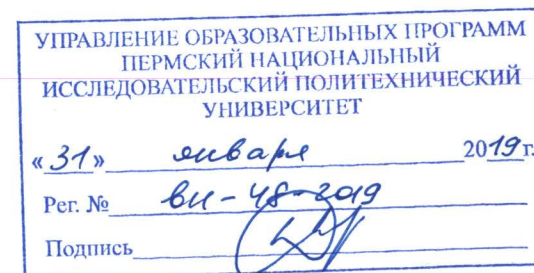 УПРАВЛЕНИЕ ОБРАЗОВАТЕЛЬНЫХ ПРОГРАММ
ПЕРМСКИЙ НАЦИОНАЛЬНЫЙ
ИССЛЕДОВАТЕЛЬСКИЙ ПОЛИТЕХНИЧЕСКИЙ
УНИВЕРСИТЕТ
«31» января 2019 г.
Рег. № вн-48-2019
Подпись